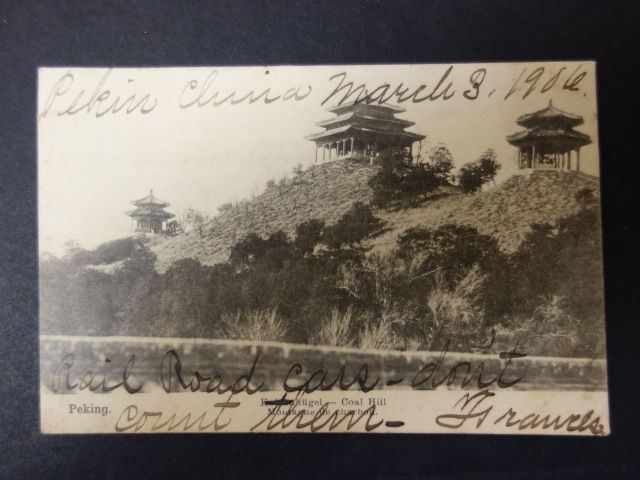 Pekin China March 3. 1906.
Rail Road cars - dont
Peking. - Coal Hill
Montagne de charbon.
count them -